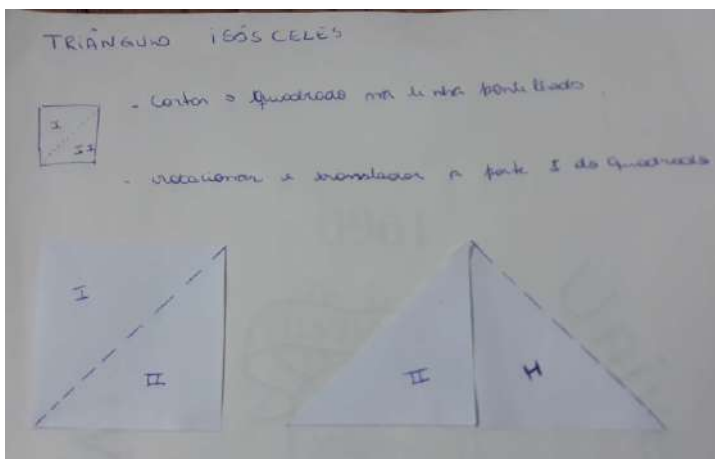 TRIÂNGULO ISÓSCELES
- Cortar o quadrado na linha pontilhado.
I
II
- rotacionar e transladar a parte I do quadrado
I
II
II
H